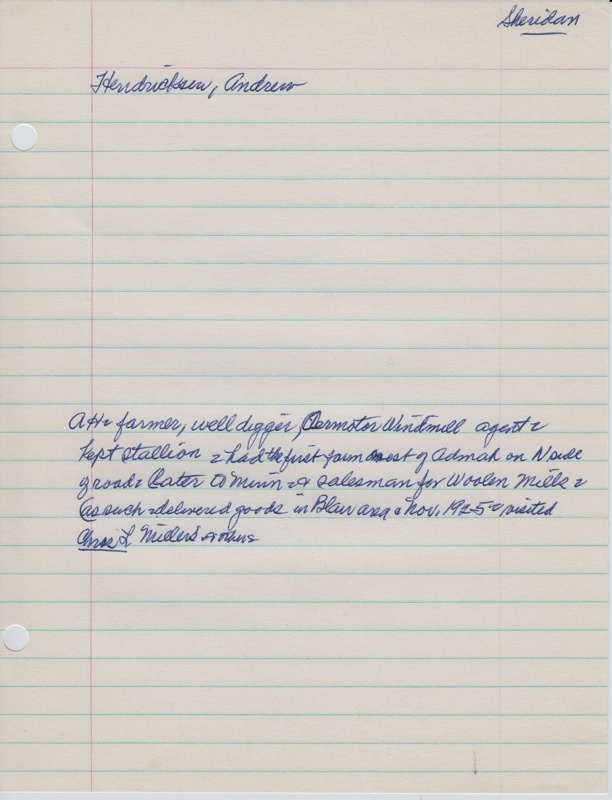 Sheridan
Hendricksen, Andrew
AH - farmer, well digger, Aermotor Windmill agent -
Kept stallion - had the first farm west of Admah on N side
of road - Later to Minn - a salesman for Woolen Mills -
(as such - delivered goods in Blair area - Nov. 1925 - visited
Chras L Nielsens - others